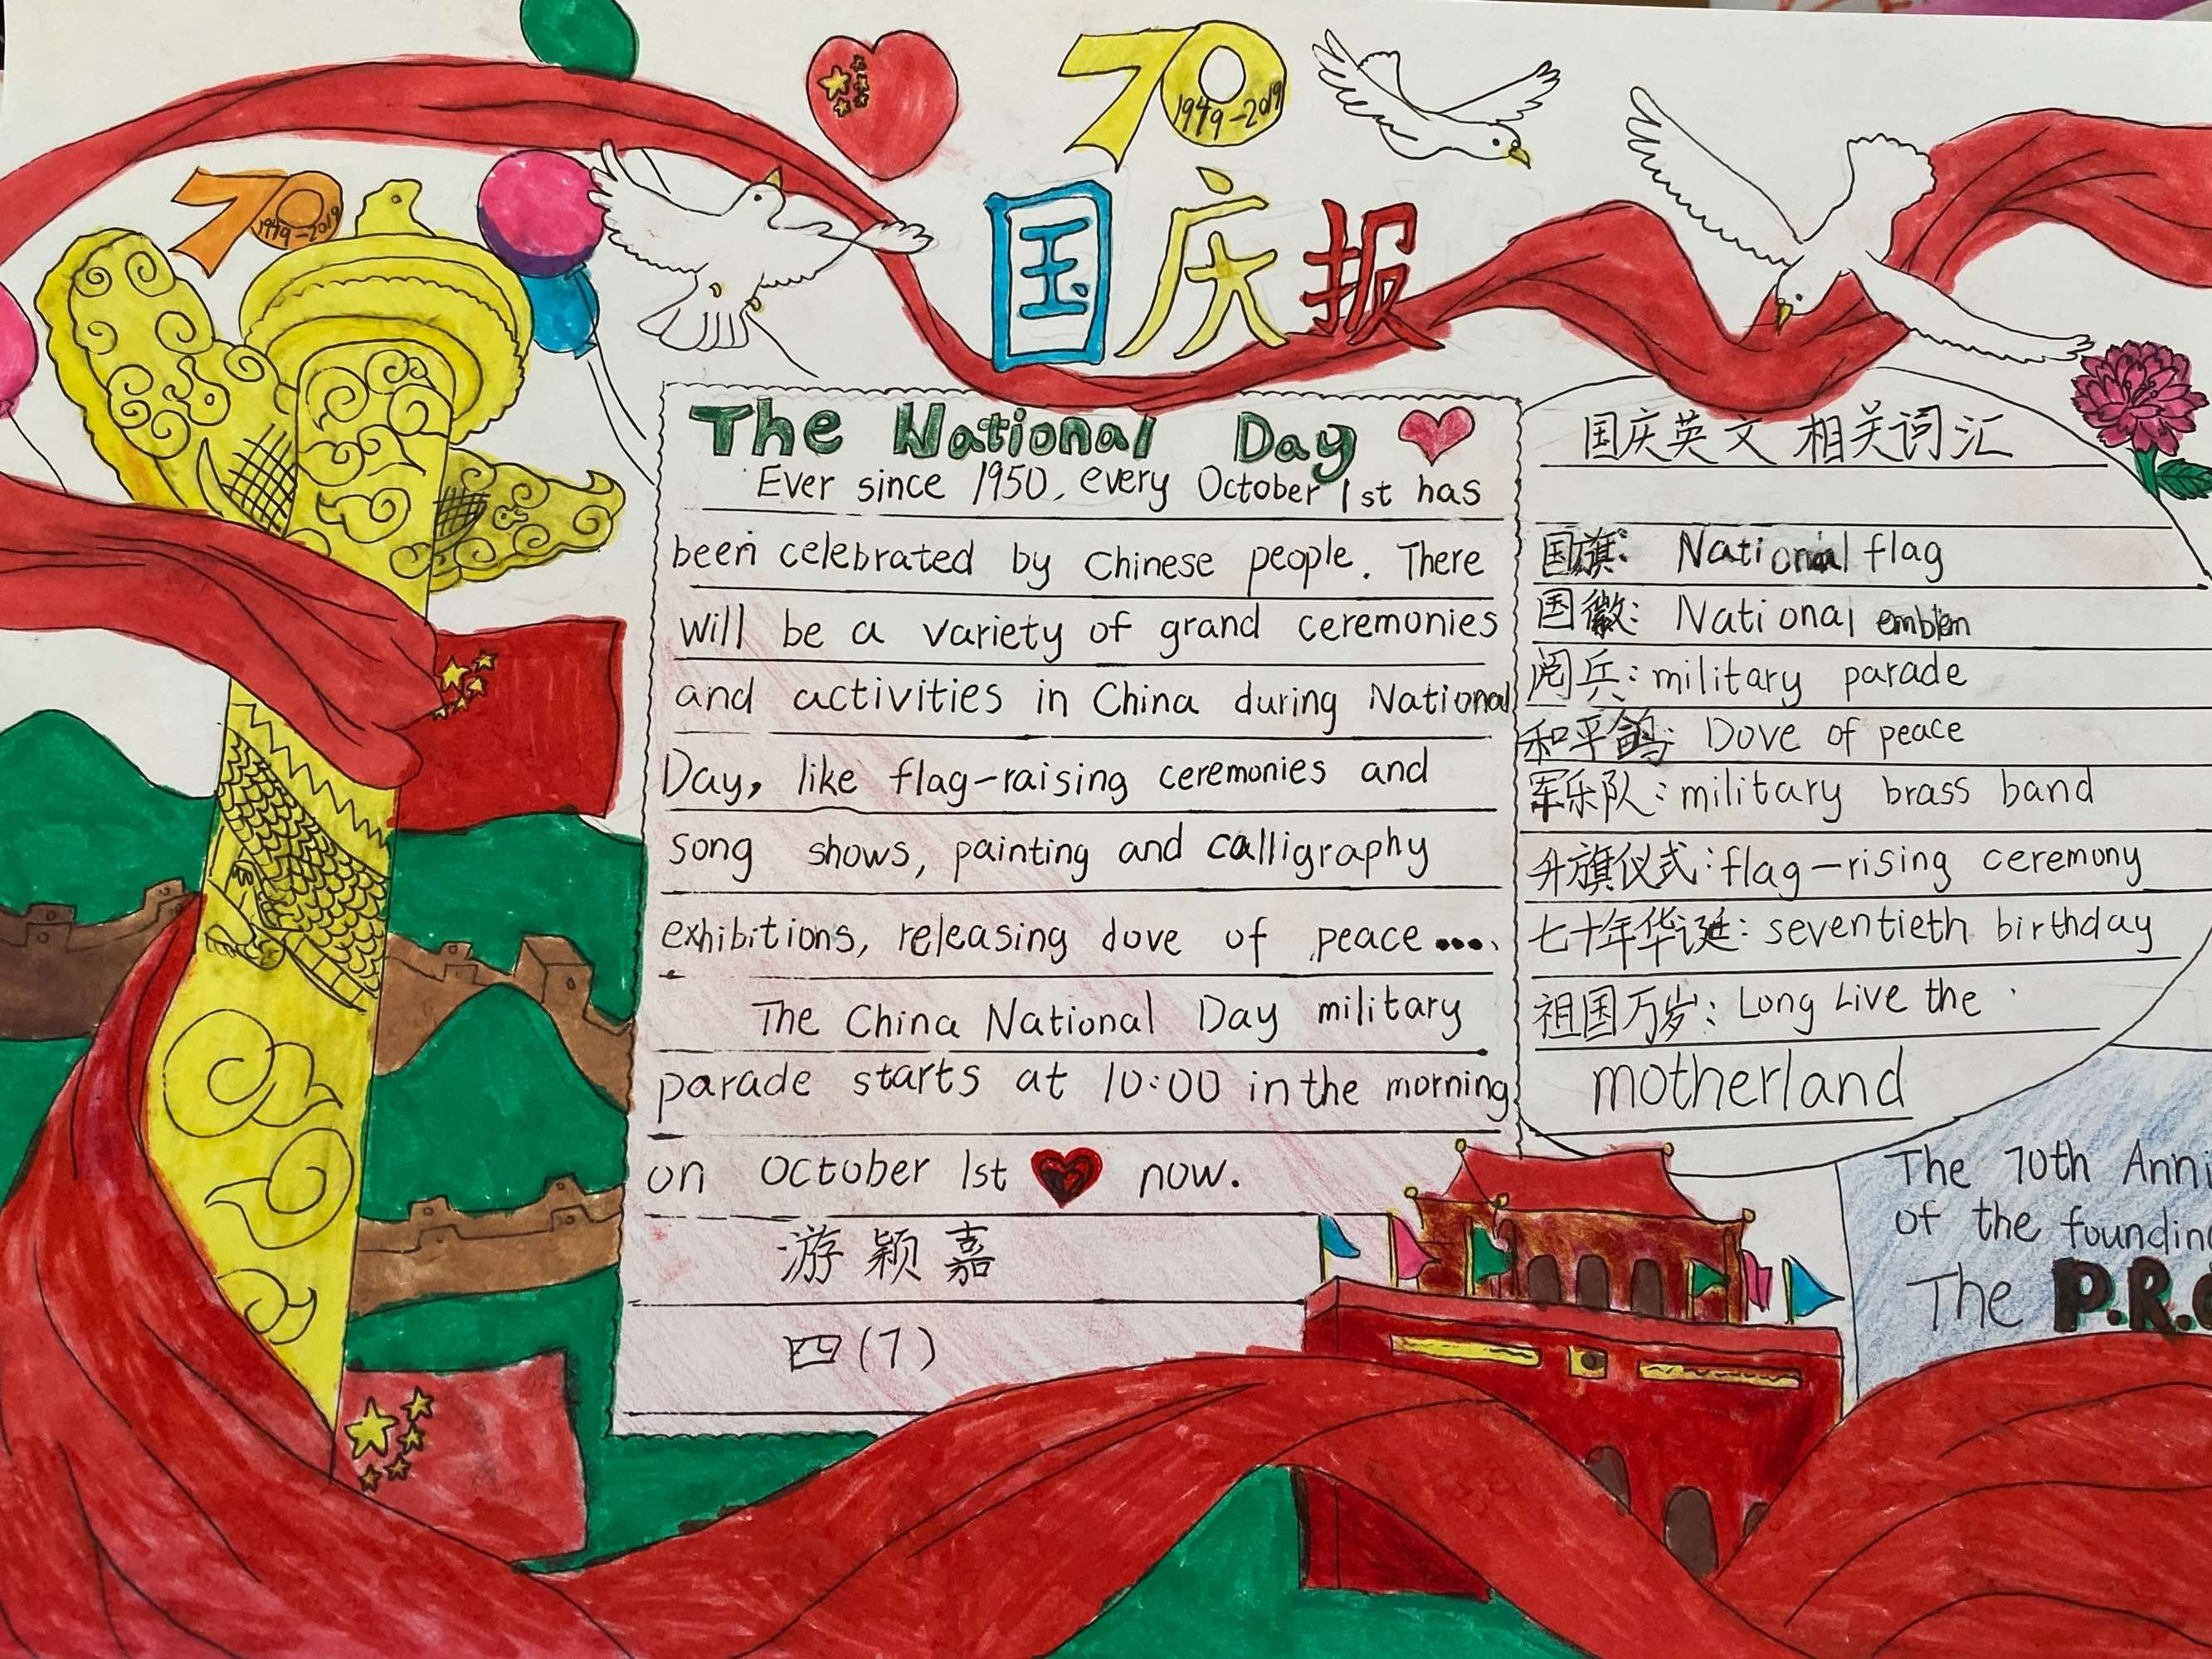 70
1949-2019
70
1949-2019
国庆报
The National Day
Ever since 1950, every October 1st has
been celebrated by Chinese people. There
will be a variety of grand ceremonies
and activities in China during National
Day, like flag-raising ceremonies and
song shows, painting and calligraphy
exhibitions, releasing dove of peace....
The China National Day military
parade starts at 10:00 in the morning
on October 1st now.
游颖嘉
四(7)
国庆英文相关词汇
国旗: National flag
国徽: National emblem
阅兵: military parade
和平鸽: Dove of peace
军乐队: military brass band
升旗仪式: flag-rising ceremony
七十年华诞: seventieth birthday
祖国万岁: Long Live the
motherland
The 70th Anni
of the foundin
The P.R.C